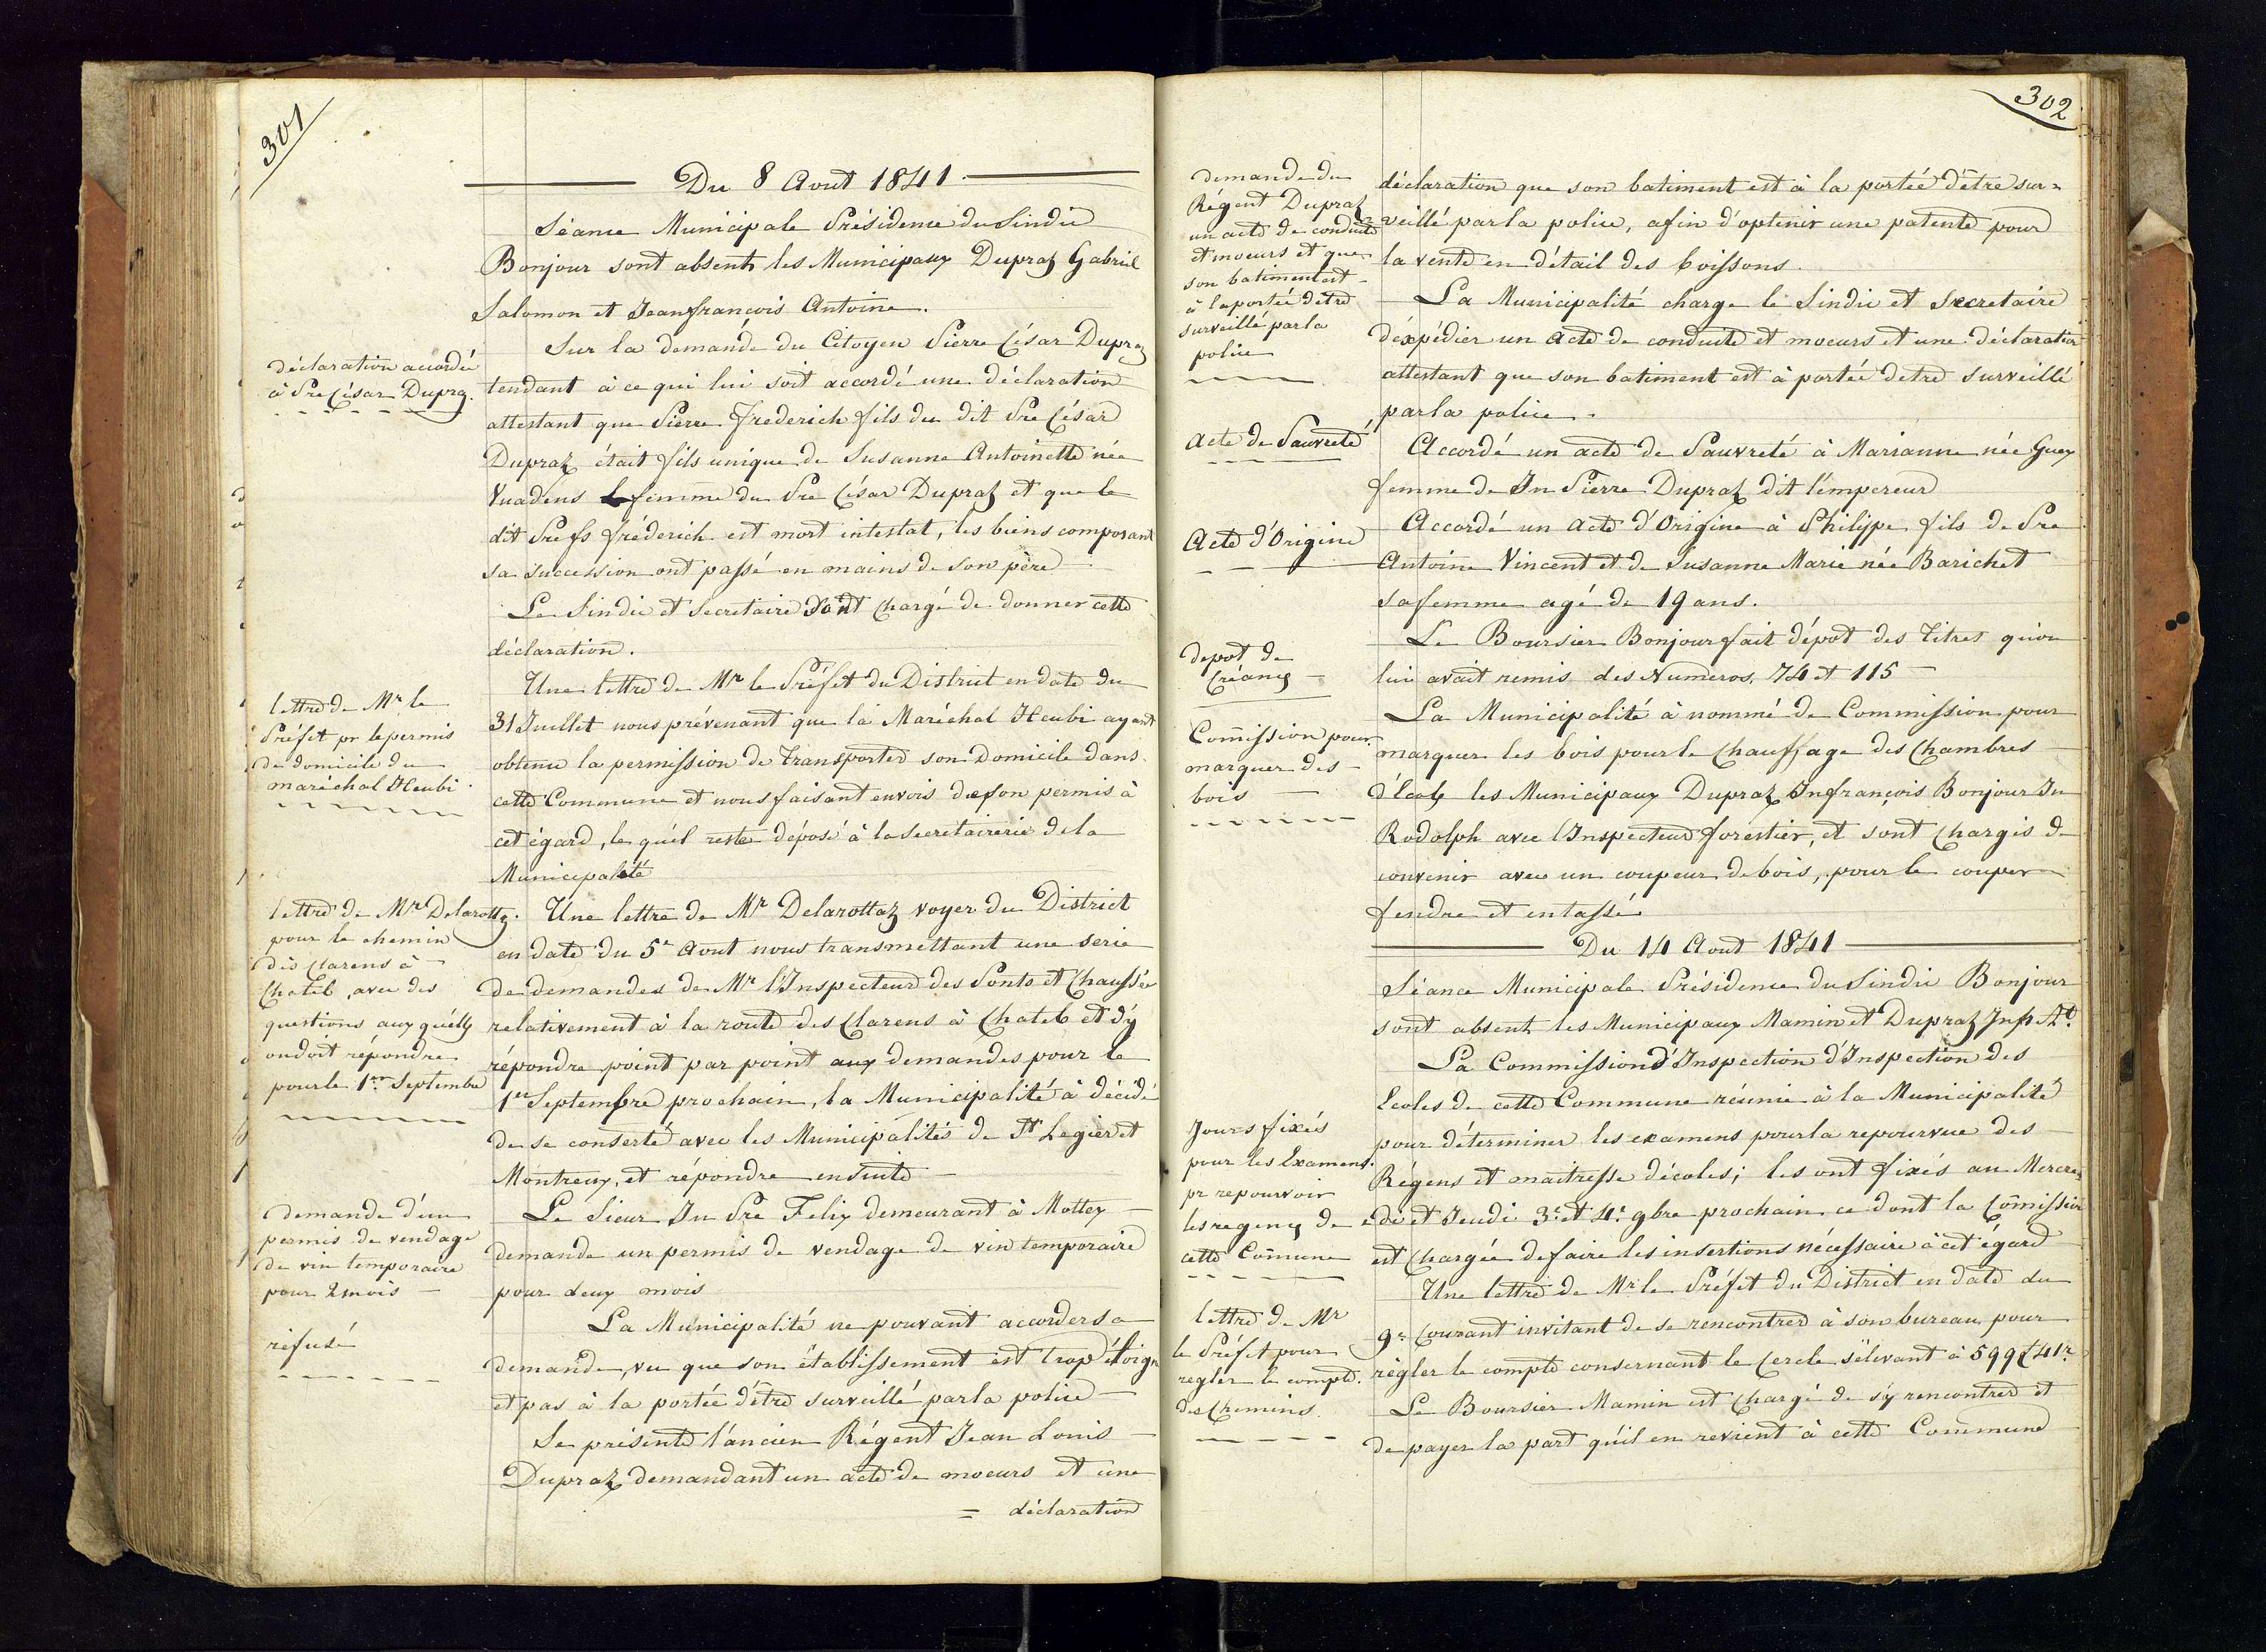 301
Du 8 Aout 1841
Séance Municipale Présidence du Sindic
Bonjour sont absents les Municipaux Dupraz Gabriel
Salomon et Jeanfrançois Antoine.
déclaration accordée
à Pre César Dupraz.
Sur la demande du Citoyen Pierre César Dupraz
tendant à ce qui lui soit accordé une déclaration
attestant que Pierre Frederich fils du dit Pre César
Dupraz était fils unique de Susanne Antoinette née
Vuadens femme du Pre César Dupraz et que le
dit Pre fs fréderich est mort intestat, les biens composant
sa succession ont passé en mains de son père
Le Sindic et Secretaire sont chargé de donner cette
déclaration.
lettre de Mr le
Préfet pr le permis
de domicile du
maréchal Heubi
Une lettre de Mr le Préfet du District en date du
31 Juillet nous prévenant que la Maréchal Heubi ayant
obtenu la permission de transporter son Domicile dans
cette Commune et nous faisant envois de son permis à
cet égard, le quél reste déposé à la Secretairerie de la
Municipalité
lettre de Mr Delarottaz
pour le chemin
dès Clarens à
Chatel, avec des
questions aux quélles
on doit répondre
pour le 1er Septembre
Une lettre de Mr Delarottaz voyer du District
en date du 5e Aout nous transmettant une serie
de demandes de Mr l'Inspecteur des Ponts et Chaussée
relativement à la route des Clarens à Chatel et d'y
répondre point par point aux demandes pour le
1er Septembre prochain, la Municipalité à décidé
de se conserté avec les Municipalités de St Legier et
Montreux, et répondre ensuite
demande d'un
permis de vendage
de vin temporaire
pour 2 mois
refusé
Le Sieur Jn Pre Felix demeurant à Mottex
demande un permis de vendage de vin temporaire
pour deux mois
La Municipalité ne pouvant accorder sa
demande, vu que son établissement est trop éloign
et pas à la portée d'être surveillé par la police
Se présente l'ancien Régent Jean Louis
Dupraz demandant un acte de moeurs et une
= déclaration
302
demande du
Régent Dupraz
un acte de conduite
et moeurs et que
son batiment est
à la portée d'etre
surveillé par la
police
déclaration que son batiment est à la portée d'être sur=
veillé par la police, afin d'optenir une patente pour
la vente en détail des boissons.
La Municipalité charge le Sindic et Secretaire
déxpédier un Acte de conduite et moeurs et une déclaration
attestant que son batiment est à portée d'etre surveillé
par la police.
Acte de Pauvreté
Accordé un acte de Pauvreté à Marianne née Guex
femme de Jn Pierre Dupraz dit l'émpereur
Acte d'Origine
Accordé un Acte d'Origine à Philippe fils de Pre
Antoine Vincent et de Susanne Marie née Barichet
sa femme agé de 19 ans.
depot de
Créances
Le Boursier Bonjour fait dépot des titres qu'on
lui avait remis des Numeros, 74 et 115
Com̄ission pour
marquer des
bois
La Municipalité à nommé de Commission pour
marquer les bois pour le Chauffage des Chambres
d'école les Municipaux Dupraz Jn françois Bonjour Jn
Rodolph avec l'Inspecteur forestier, et sont chargés de
convenir avec un coupeur de bois, pour le couper
fendre et entassé
Du 14 Aout 1841
Séance Municipale Présidence du Sindic Bonjour
sont absent les Municipaux Mamin et Dupraz Jn fs At.
La Commission d'Inspection d'Inspection des
Ecoles de cette Commune réunie à la Municipalité
Jours fixés
pour les Examens
pr repourvoir
les regens de
cette Com̄une
pour déterminer les examens pour la repourvue des
Régens et maitresse d'écoles; les ont fixés au Mercre=
di et Jeudi 3e et 4e 9bre prochain ce dont la Com̄ission
est chargée de faire les insertions nécessaire à cet égard
lettre de Mr
le Préfet pour
regler le compte
des Chemins.
Une lettre de Mr le Préfet du District en date du
9e Courant invitant de se rencontrer à son bureau pour
règler le compte consernant le Cercle s'élevant à 599
Le Boursier Mamin est chargé de s'y rencontrer et
de payer la part qu'il en revient à cette Commune